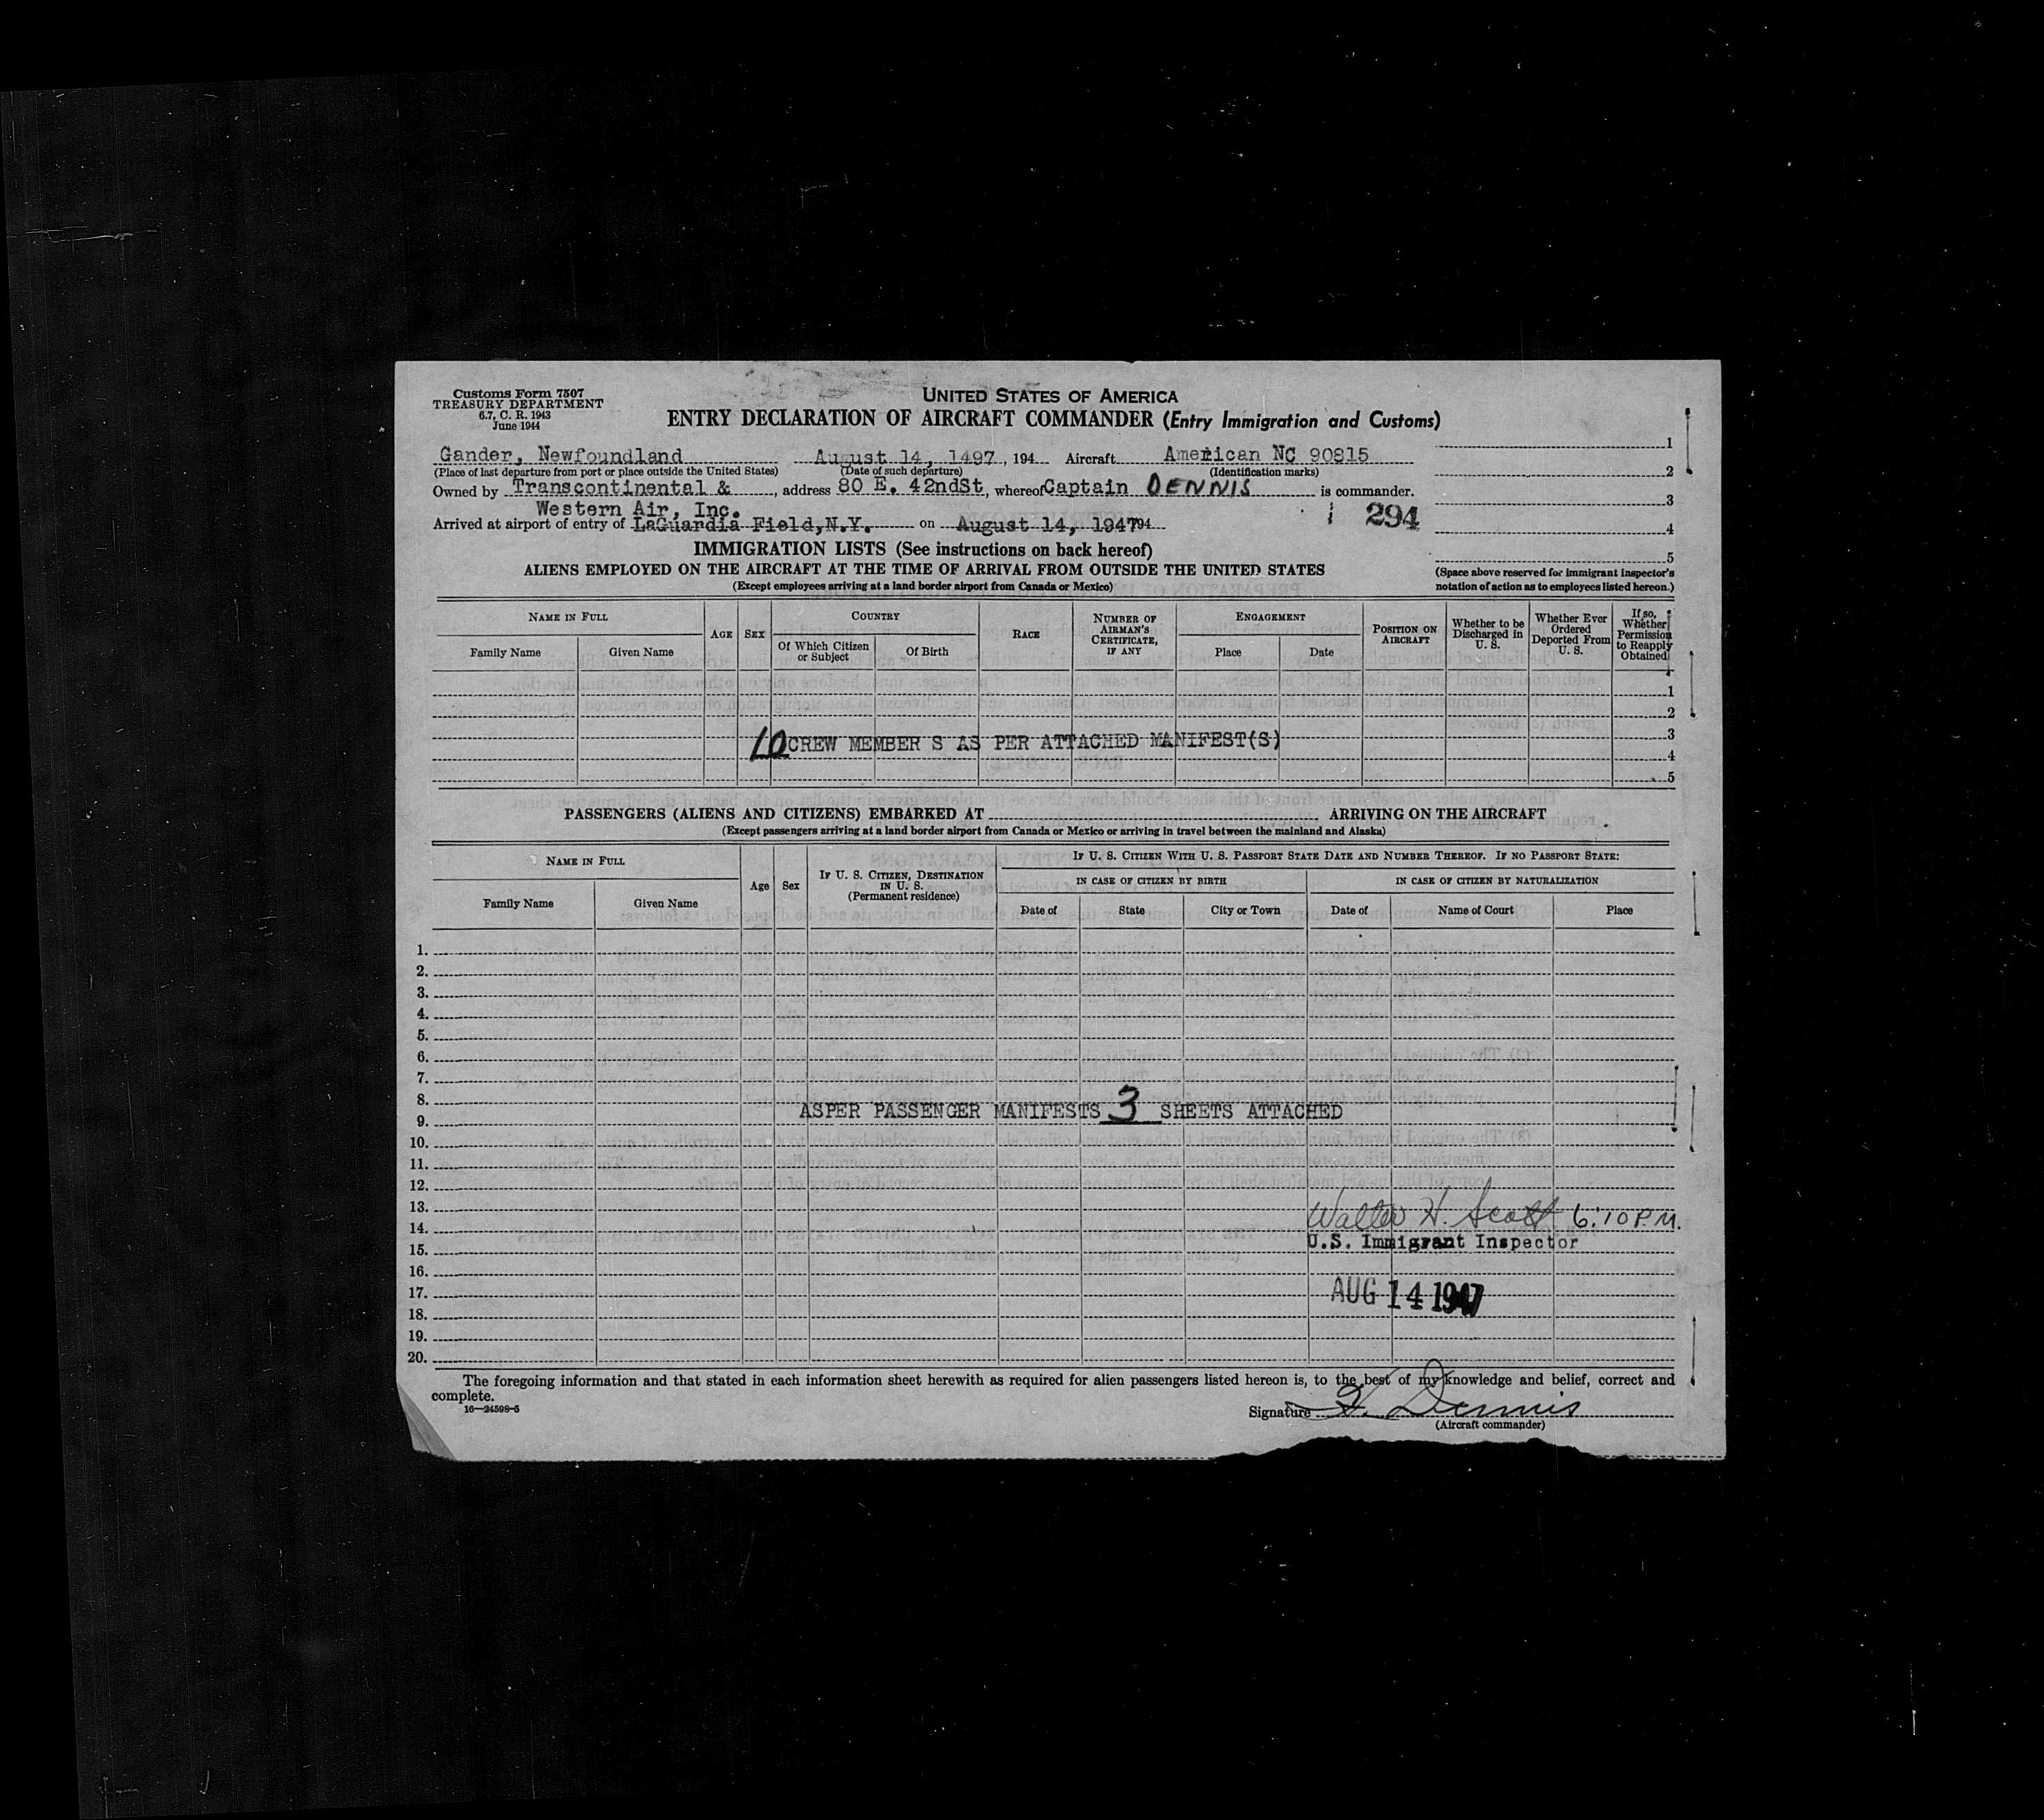 Customs Form 7507
TREASURY DEPARTMENT
6.7, C. R. 1943
June 1944
UNITED STATES OF AMERICA
ENTRY DECLARATION OF AIRCRAFT COMMANDER (Entry Immigration and Customs)
Gander, Newfoundland August 14, 1497, 194 Aircraft American NC 90815
(Place of last departure from port or place outside the United States) (Date of such departure) (Identification marks)
Owned by Transcontinental & , address 80 E. 42ndSt, whereof Captain DENNIS is commander.
Western Air, Inc.
Arrived at airport of entry of LaGuardia Field, N.Y. on August 14, 1947 94
294
1
2
3
4
5
(Space above reserved for immigrant inspector's notation of action as to employees listed hereon.)
IMMIGRATION LISTS (See instructions on back hereof)
ALIENS EMPLOYED ON THE AIRCRAFT AT THE TIME OF ARRIVAL FROM OUTSIDE THE UNITED STATES
(Except employees arriving at a land border airport from Canada or Mexico)
NAME IN FULL
Family Name
Given Name
AGE
SEX
COUNTRY
Of Which Citizen or Subject
Of Birth
RACE
NUMBER OF AIRMAN'S CERTIFICATE, IF ANY
ENGAGEMENT
Place
Date
POSITION ON AIRCRAFT
Whether to be Discharged in U. S.
Whether Ever Ordered Deported From U. S.
If so, Whether Permission to Reapply Obtained
1
2
3
4
5
10 CREW MEMBER S AS PER ATTACHED MANIFEST(S)
PASSENGERS (ALIENS AND CITIZENS) EMBARKED AT ARRIVING ON THE AIRCRAFT
(Except passengers arriving at a land border airport from Canada or Mexico or arriving in travel between the mainland and Alaska)
NAME IN FULL
Family Name
Given Name
Age
Sex
IF U. S. CITIZEN, DESTINATION IN U. S. (Permanent residence)
IF U. S. CITIZEN WITH U. S. PASSPORT STATE DATE AND NUMBER THEREOF. IF NO PASSPORT STATE:
IN CASE OF CITIZEN BY BIRTH
IN CASE OF CITIZEN BY NATURALIZATION
Date of
State
City or Town
Date of
Name of Court
Place
1.
2.
3.
4.
5.
6.
7.
8.
ASPER PASSENGER MANIFESTS 3 SHEETS ATTACHED
9.
10.
11.
12.
13.
Walter H. Scott 6:10 P.M.
14.
U.S. Immigrant Inspector
15.
16.
17.
AUG 14 1947
18.
19.
20.
The foregoing information and that stated in each information sheet herewith as required for alien passengers listed hereon is, to the best of my knowledge and belief, correct and
complete.
16—24598-5
Signature H. Dennis
(Aircraft commander)